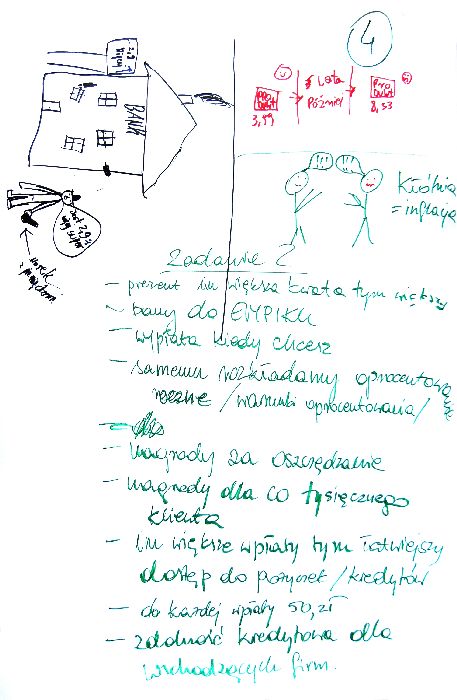 4
BANK
PRO
DUKT
3,99
2 Lata
Później
PRO
DUKT
8,53
Kłótnia
= inflacja
worek
z pieniędzmi
Zadanie 2
- prezent im większa kwota tym większy
- bony do EMPIKU
- wypłata kiedy chcesz
- samemu rozkładamy oprocentowanie
roczne / warunki oprocentowania /
- nagrody za oszczędzanie
- nagrody dla co tysięcznego
klienta
- im większe wpłaty tym łatwiejszy
dostęp do pożyczek / kredytów
- do każdej wpłaty 50, zł
- zdolność kredytowa dla
wschodzących firm.